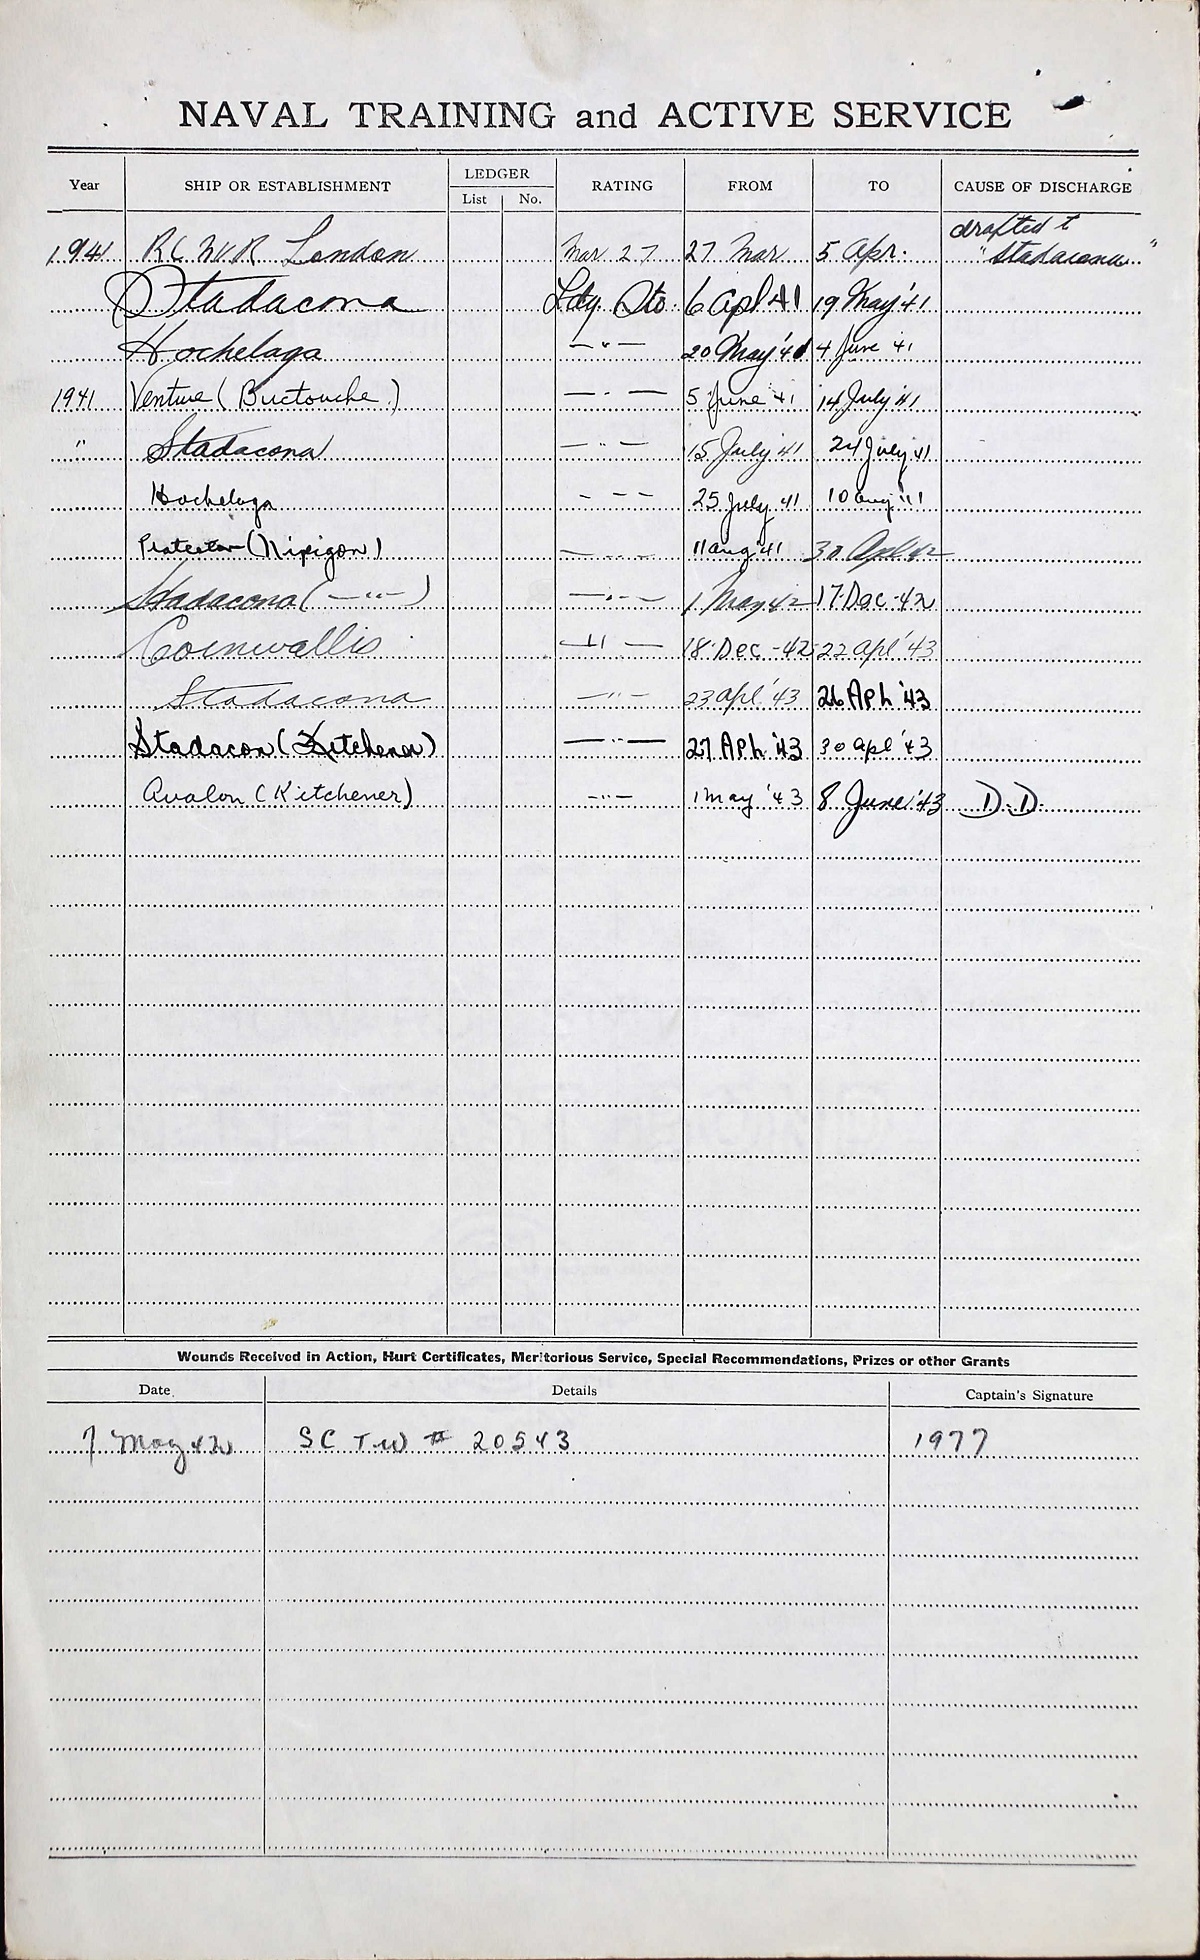 NAVAL TRAINING and ACTIVE SERVICE
Year SHIP OR ESTABLISHMENT LEDGER List No. RATING FROM TO CAUSE OF DISCHARGE
1941 RCNVR London Mar 27 27 Mar 5 Apr. drafted t "Stadacona"
Stadacona Ldg. Sto. 6 Apl 41 19 May '41
Hochelaga —"— 20 May '41 4 June '41
1941 Venture (Buctouche) — . — 5 June '41 14 July '41
" Stadacona — " — 15 July '41 24 July 41
Hochelaga – – – 25 July 41 10 Aug '41
Protector (Nipigon) — . . — 11 Aug '41 30 Apl '42
Stadacona (—"—) —"— 1 May 42 17-Dec-42
Cornwallis —"— 18-Dec-42 22 Apl '43
Stadacona —"— 23 Apl '43 26 Apl '43
Stadacon (Kitchener) —"— 27 Apl '43 30 Apl '43
Avalon (Kitchener) —"— 1 May '43 8 June '43 D.D.
Wounds Received in Action, Hurt Certificates, Meritorious Service, Special Recommendations, Prizes or other Grants
Date Details Captain's Signature
7 May 42 SC TW # 20543 1977